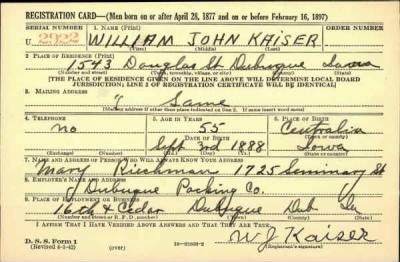 REGISTRATION CARD—(Men born on or after April 28, 1877 and on or before February 16, 1897)
SERIAL NUMBER 1. NAME (Print) ORDER NUMBER
U 2922 WILLIAM JOHN KAISER
(First) (Middle) (Last)
2. PLACE OF RESIDENCE (Print)
1543 Douglas St Dubuque Iowa
(Number and street) (Town, township, village, or city) (County) (State)
[THE PLACE OF RESIDENCE GIVEN ON THE LINE ABOVE WILL DETERMINE LOCAL BOARD
JURISDICTION; LINE 2 OF REGISTRATION CERTIFICATE WILL BE IDENTICAL]
3. MAILING ADDRESS
Same
[Mailing address if other than place indicated on line 2. If same insert word same]
4. TELEPHONE 5. AGE IN YEARS 6. PLACE OF BIRTH
no 55 Centralia
DATE OF BIRTH (Town or county)
Sept 3rd 1888 Iowa
(Exchange) (Number) (Mo.) (Day) (Yr.) (State or country)
7. NAME AND ADDRESS OF PERSON WHO WILL ALWAYS KNOW YOUR ADDRESS
Mary Richman 1725 Seminary St
8. EMPLOYER'S NAME AND ADDRESS
Dubuque Packing Co.
9. PLACE OF EMPLOYMENT OR BUSINESS
16th & Cedar Dubuque Dub Ia
(Number and street or R. F. D. number) (Town) (County) (State)
I AFFIRM THAT I HAVE VERIFIED ABOVE ANSWERS AND THAT THEY ARE TRUE.
D. S. S. Form 1
(Revised 4-1-42) (over) W J Kaiser